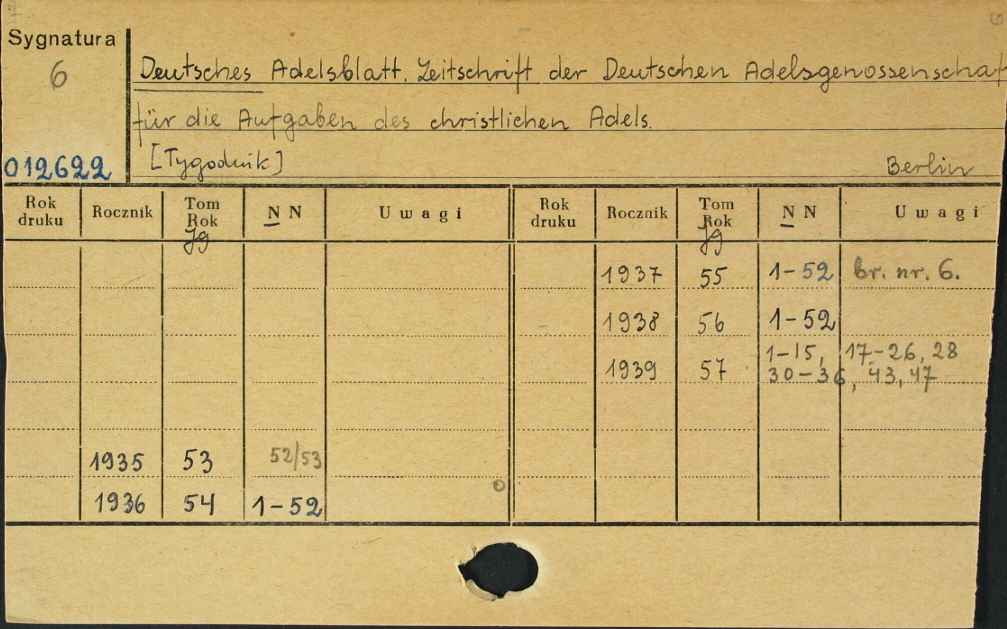 Sygnatura
6
012622
Deutsches Adelsblatt. Zeitschrift der Deutschen Adelsgenossenschaf
für die Aufgaben des christlichen Adels.
[Tygodnik] Berlin
Rok druku Rocznik Tom Rok Jg N N Uwagi Rok druku Rocznik Tom Rok Jg N N Uwagi
1937 55 1-52 br. nr. 6.
1938 56 1-52
1939 57 1-15, 17-26, 28
30-36, 43, 47
1935 53 52/53
1936 54 1-52